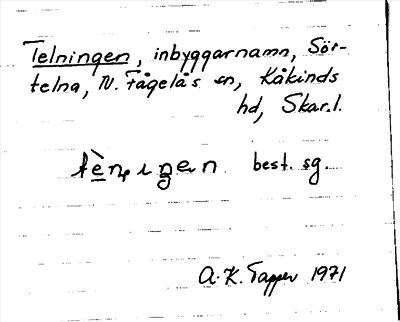 Telningen, inbyggarnamn, Sör-
telna, N. Fågelås sn, Kåkinds
hd, Skar.l.
best. sg.
A. K. Tapper 1971